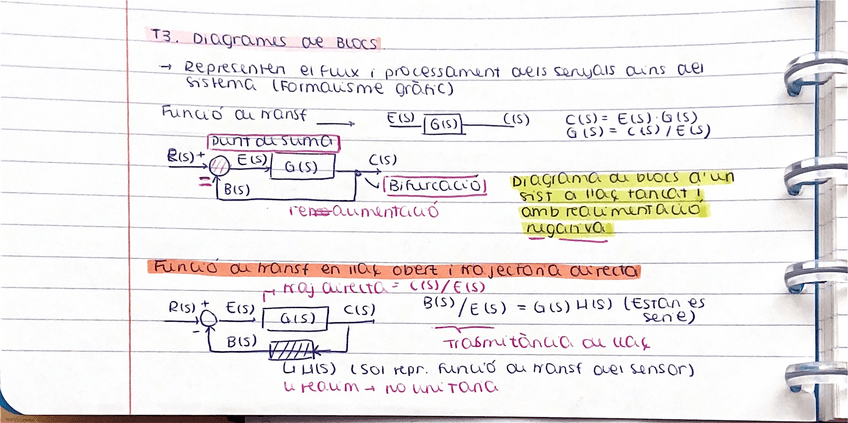 T3. Diagrames de Blocs
→ Representen el flux i processament dels senyals dins del
sistema (Formalisme gràfic)
Funció de transf → E(s) G(s) C(s) C(s) = E(s)·G(s)
G(s) = C(s)/E(s)
punt de suma
R(s) + E(s) G(s) C(s)
B(s) Bifurcació
realimentació
Diagrama de blocs d'un
sist a llaç tancat i
amb realimentació
negativa
Funció de transf en llaç obert i trajectoria directa
traj directa = C(s)/E(s)
R(s) + E(s) G(s) C(s) B(s)/E(s) = G(s) H(s) (Estan es
serie)
- B(s) Trasmitància de llaç
H(s) (Sol repr. funció de transf del sensor)
realim → no unitaria